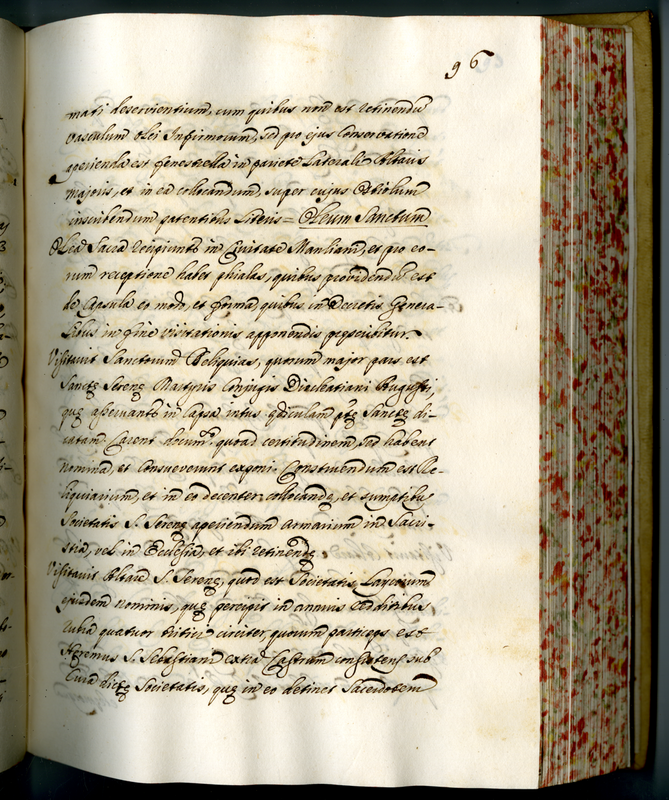 96
mati deservientium, cum quibus non est retinendũ
vasculum olei Infirmorum, sed pro ejus conservatione
aperienda est fenestrella in pariete laterali Altaris
majoris, et in ea collocandum, super cujus Ostiolum
inscribendum patentibus literis = Oleum Sanctum
Olea Sacra recipiunt in Civitate Manliana, et pro eo-
rum receptione habet phiales, quibus providendũ est
de Capsula eo modo, et forma, quibus in Decretis Genera-
libus in fine visitationis apponendis prescribitur.
Visitavit Sanctorum Reliquias, quarum major pars est
Sanctę Serenę Martyris Conjugis Diocletiani Augusti,
quę asservantr in Capsa intus ędiculam ptę Sanctę di-
catam. Carent docum.tis quoad certitudinem, sed habent
nomina, et consueverunt exponi. Construendum est Re-
liquiarium, et in eo decenter collocandę, et sumptibus
Societatis S. Serenę aperiendum armarium in Sacri-
stia, vel in Ecclesia, et ibi retinendę.
Visitavit Altare S. Serenę, quod est Societatis Laicorum
ejusdem nominis, quę percipit in annuis redditibus
rubia quatuor tritici circiter, quorum particeps est
Heremus S. Sebastiani extra Castrum consistens sub
cura dictę Societatis, quę in eo detinet Sacerdotem